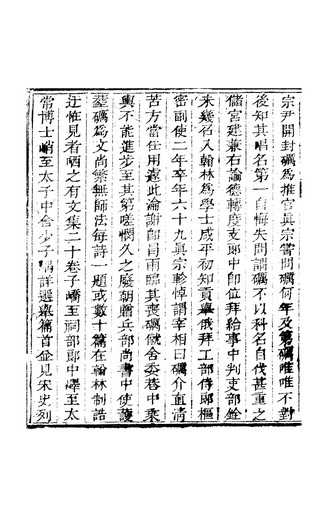 宗尹開封礪爲推官真宗嘗問礪何年及第礪唯唯不對
後知其唱名第一自悔失問謂礪不以科名自伐甚重之
儲宮建兼右諭德轉度支郎中即位拜給事中判吏部銓
未幾召入翰林爲學士咸平初知貢舉俄拜工部侍郎樞
密副使二年卒年六十九真宗軫悼謂宰相曰礪介直清
苦方當任用遽此淪謝即冒雨臨其喪礪僦舍委巷中乘
輿不能進步至其第嗟憫久之廢朝贈兵部尚書中使護
葬礪爲文尚繁無師法每詩一題或數十篇在翰林制誥
迂怪見者哂之有文集二十卷子嶠至祠部郎中嶧至太
常博士峭至太子中舍少子嵎詳選舉篇首僉見宋史列